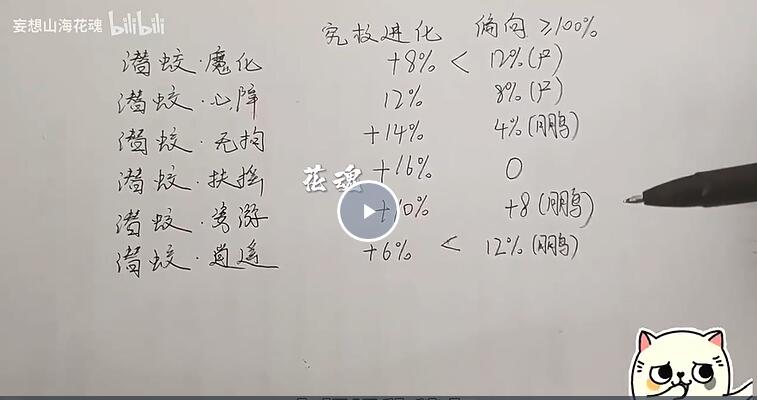 妄想山海花魂 bilibili
究极进化 偏向 ≥100%
潜蛟·魔化 +8% < 12%(尸)
潜蛟·心障 12% 8%(尸)
潜蛟·无拘 +14% 4%(鹏)
潜蛟·扶摇 +16% 0
花魂
潜蛟· +10% +8(鹏)
潜蛟·逍遥 +6% < 12%(鹏)